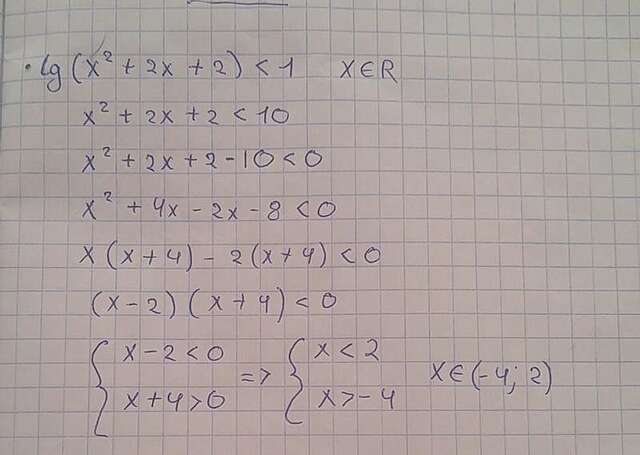 • lg (x² + 2x + 2) < 1 X ∈ R
x² + 2x + 2 < 10
x² + 2x + 2 - 10 < 0
x² + 4x - 2x - 8 < 0
x (x + 4) - 2 (x + 4) < 0
(x - 2) (x + 4) < 0
{ x - 2 < 0 => { x < 2
{ x + 4 > 0 { x > - 4 X ∈ (- 4; 2)